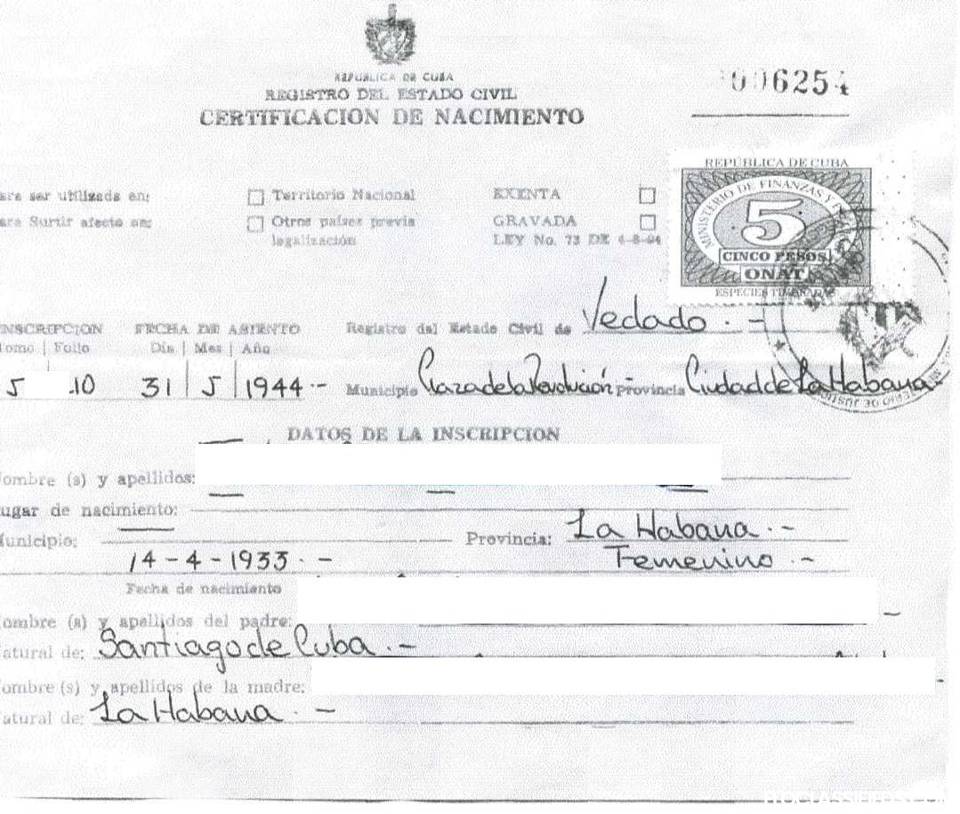 REPUBLICA DE CUBA
REGISTRO DEL ESTADO CIVIL
CERTIFICACION DE NACIMIENTO
006254
REPÚBLICA DE CUBA
MINISTERIO DE FINANZAS Y
5
CINCO PESOS
ONAT
ESPECIES TIMBRADAS
ara ser utilizada en: Territorio Nacional EXENTA
ara Surtir afecto en: Otros países previa GRAVADA
legalización LEY No. 73 DE 4-8-94
NSCRIPCION FECHA DE ASIENTO Registro del Estado Civil de Vedado. -
Tomo | Folio Dia | Mes | Año
5 10 31 | 5 | 1944.- Municipio Plaza de la Revolución - Provincia Ciudad de La Habana.
DATOS DE LA INSCRIPCION
ombre (s) y apellidos:
ugar de nacimiento:
Municipio: Provincia: La Habana. -
14-4-1933. - Femenino. -
Fecha de nacimiento
ombre (s) y apellidos del padre:
atural de: Santiago de Cuba. -
ombre (s) y apellidos de la madre:
atural de: La Habana. -